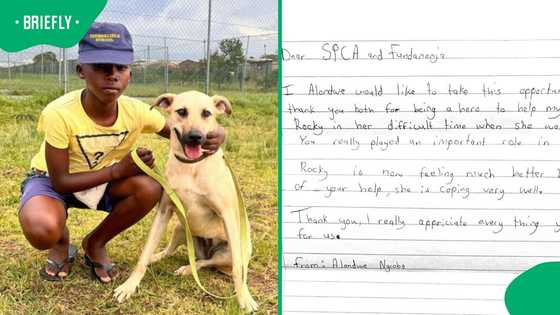 • BRIEFLY •
Dear SPCA and Fundanenja
I Alondwe would like to take this opportu
thank you both for being a hero to help my
Rocky in her difficult time when she wa
You really played an important role in
Rocky is now feeling much better b
of your help, she is coping very well.
Thank you, I really appriciate every thing y
for us.
From: Alondwe Ngcobo